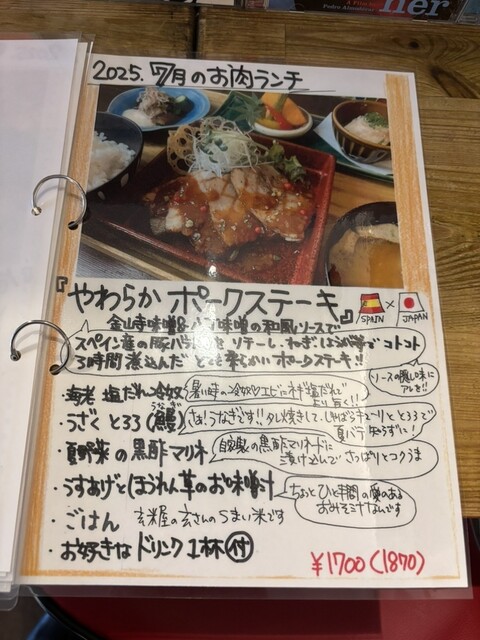 her
2025.7月のお肉ランチ
『やわらか ポークステーキ』
SPAIN × JAPAN
金山寺味噌&八丁味噌の和風ソースで
スペイン産の豚バラ肉を ソテーし、ねぎ、は
でコトコト
3時間煮込んだ とても柔らかいポークステーキ!!
ソースの隠し味に
アレを!!
・海老 塩だれ冷奴
暑い時の冷奴♡エビにネギ塩だれで
・うざくとろろ(鰻)
うなぎ
さぁ!うなぎです!!タレ焼きして、しゃばらキューリととろろで
夏バテ知らずぅ!
・夏野菜の黒酢マリネ
自家製の黒酢マリネードに
漬け込んで さっぱりとコクうま
・うすあげとほうれん草のお味噌汁
ちょっとひと手間の愛のある
おみそ汁なんです
・ごはん 玄米屋の玄さんのうまい米です
・お好きな ドリンク1杯付
¥1700(1870)